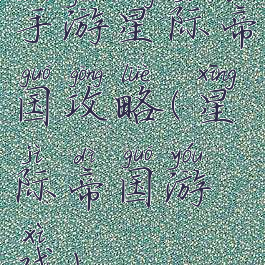 手游星际帝
guó gōng lüè xīng
国攻略(星
jì dì guó yóu
际帝国游
xì
戏)